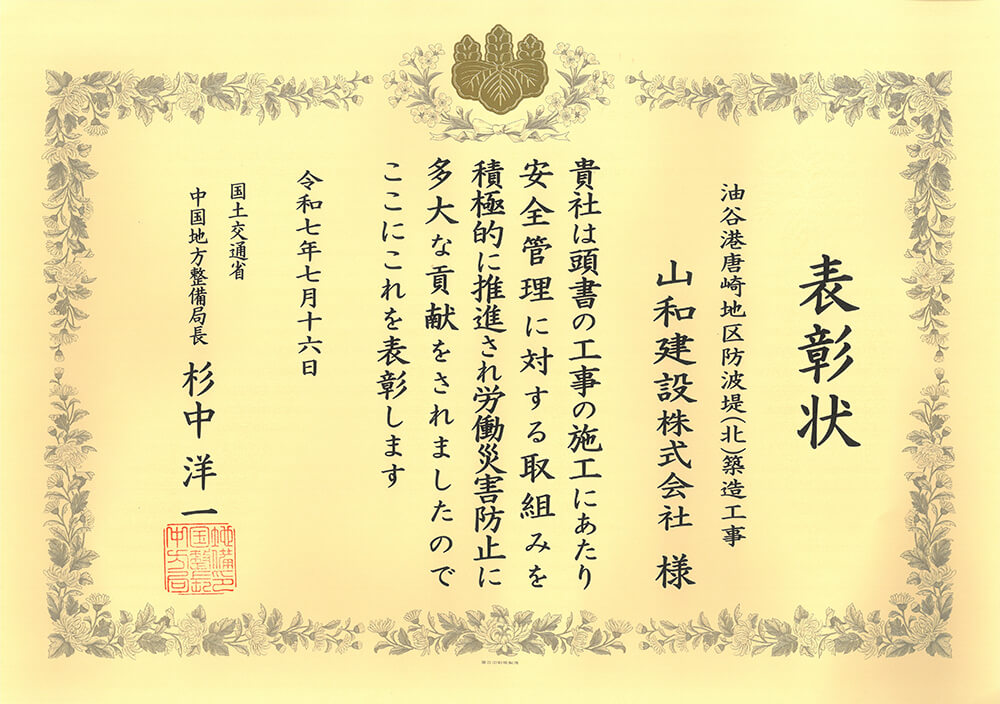 表彰状
油谷港唐崎地区防波堤(北)築造工事
山和建設株式会社 様
貴社は頭書の工事の施工にあたり
安全管理に対する取組みを
積極的に推進され労働災害防止に
多大な貢献をされましたので
ここにこれを表彰します
令和七年七月十六日
国土交通省
中国地方整備局長 杉中洋一